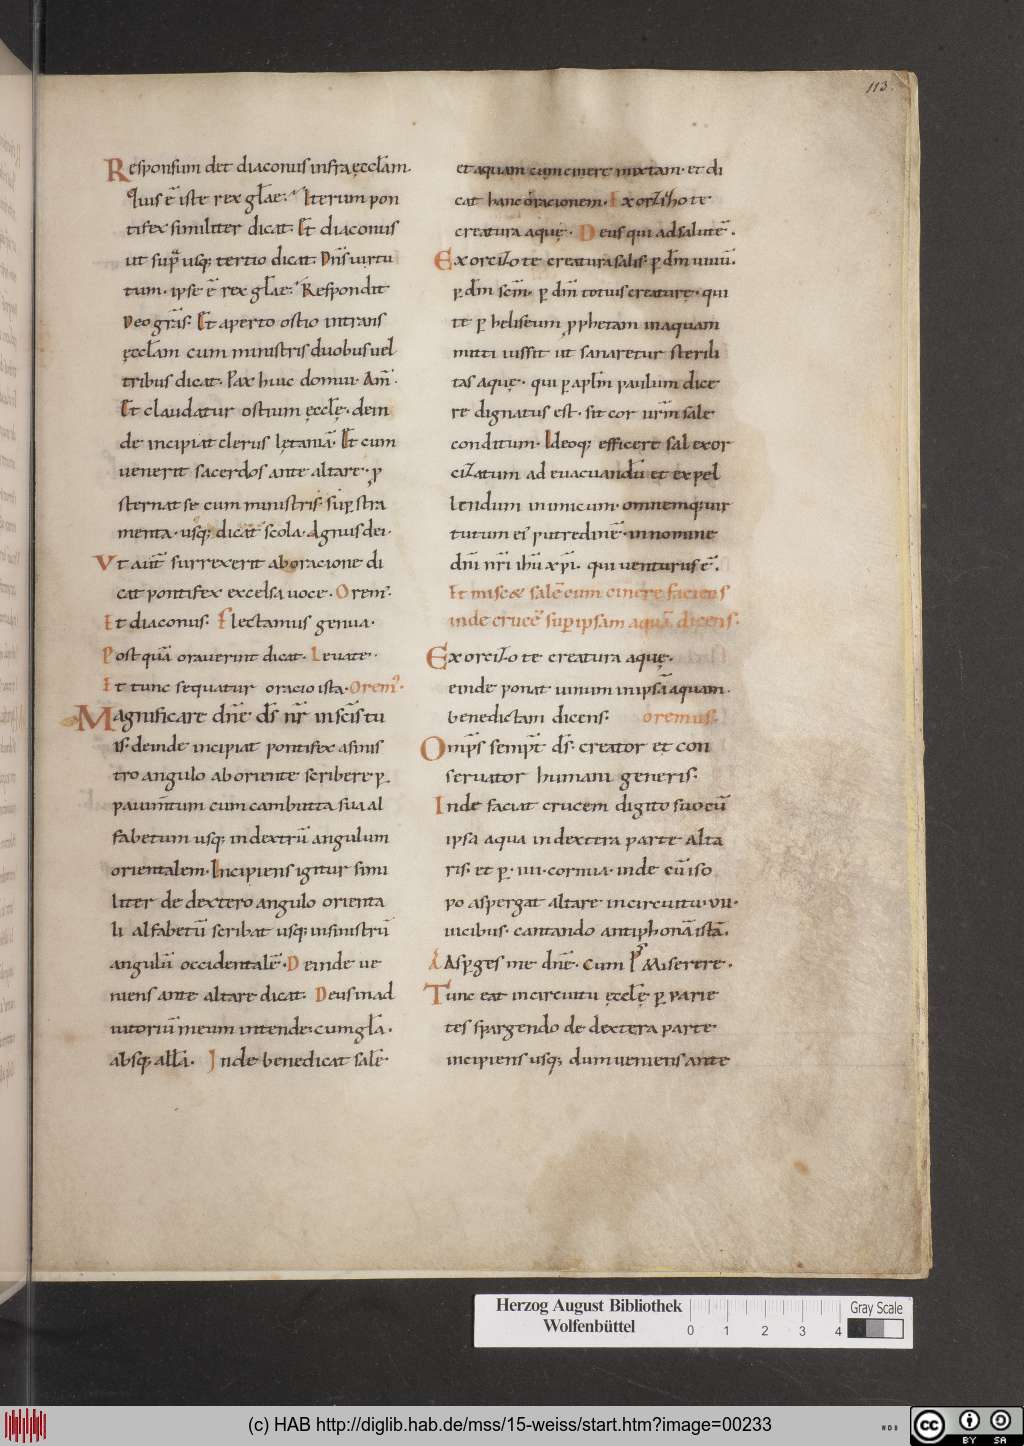 113.
Responsum det diaconus infra ęccłam.
Quis ē iste rex głae. Iterum pon
tifex similiter dicat. Et diaconus
ut sup̄ usq; tertio dicat. Dn̄s uirtu
tum. ipse ē rex głae. Respondit
Deo grās. Et aperto ostio intrans
ęccłam cum ministris duobus uel
tribus dicat. Pax huic domui. Am̄.
Et claudatur ostium ęccłę. dein
de incipiat clerus lętaniā. Et cum
uenerit sacerdos ante altare. ꝓ
sternat se cum ministris. suꝑ stra
menta. usq; dicat scola. Agnus dei.
Vt aut̄ surrexerit ab oracione di
cat pontifex excelsa uoce. Orem̄.
Et diaconus. Flectamus genua.
Post quā orauerint dicat. Leuate.
Et tunc sequatur oracio ista. Orem̄.
Magnificare dn̄e ds̄ nr̄ in scīs tu
is. deinde incipiat pontifex a sinis
tro angulo ab oriente scribere ꝑ
pauim̄tum cum cambutta sua al
fabetum usq; in dextrū angulum
orientalem. Incipiens igitur simi
liter de dextero angulo orienta
li alfabetū scribat usq; in sinistrū
angulū occidentalē. Deinde ue
niens ante altare dicat. Deus in ad
iutoriū meum intende. cum głā.
absq; ałła. Inde benedicat salē.
et aquam cum cinere mixtam. et di
cat hanc oracionem. Exorcizo te
creatura aquę. Deus qui ad salutē.
Exorcizo te creatura salis. ꝑ dm̄ uiuū.
ꝑ dm̄ scm̄. ꝑ dm̄ totius creaturę. qui
te ꝑ heliseum ꝓphetam in aquam
mitti iussit ut sanaretur sterili
tas aquę. qui ꝑ apłm paulum dice
re dignatus est. sit cor ur̄m sale
conditum. Ideoq; efficere sal exor
cizatum ad euacuandū et expel
lendum inimicum. omnemq; uir
tutum ei putredinē. in nomine
dn̄i nr̄i ihū xp̄i. qui uenturus ē.
Et misc& salē cum cinere faciens
inde crucē suꝑ ipsam aquā dicens.
Exorcizo te creatura aquę.
einde ponat uinum in ipsā aquam.
benedictam dicens. oremus.
Omp̄s sempt̄ ds̄. creator et con
seruator humani generis.
Inde faciat crucem digito suo cū
ipsa aqua in dextera parte alta
ris. et ꝑ. iiii. cornua. inde cū iso
po aspergat altare in circuitu. uii.
uicibus. cantando antiphonā istā.
A Asꝑges me dn̄e. Cum ps Miserere.
Tunc eat in circuitu ęccłę ꝑ parie
tes spargendo de dextera parte
incipiens usq; dum ueniens ante
Herzog August Bibliothek
Wolfenbüttel
0 1 2 3 4
Gray Scale
(c) HAB http://diglib.hab.de/mss/15-weiss/start.htm?image=00233
cc BY SA